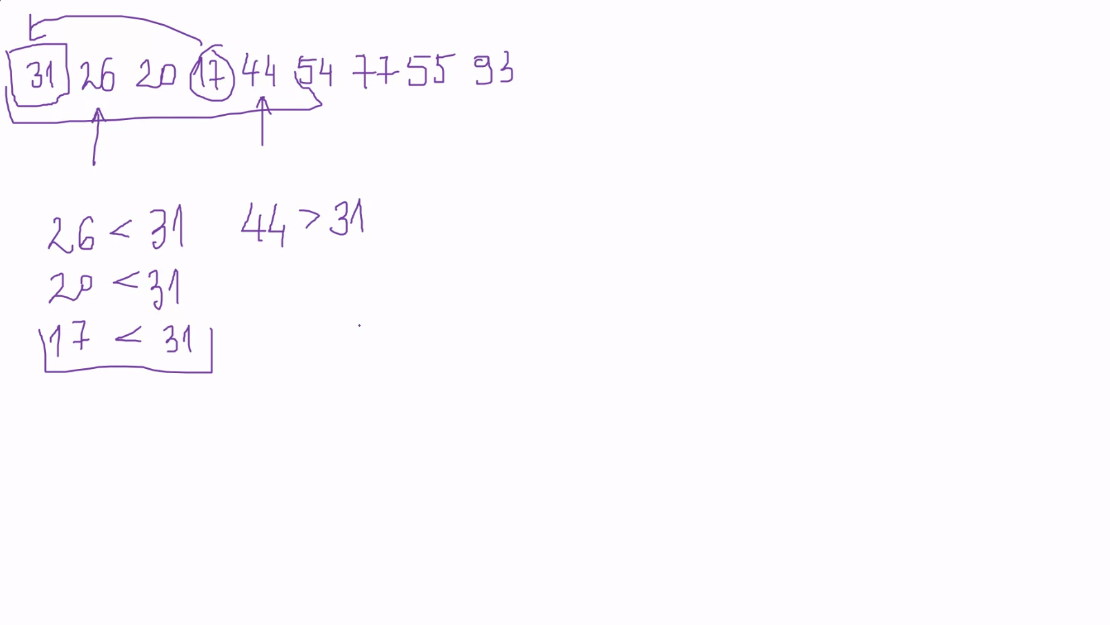 31 26 20 17 44 54 77 55 93
26 < 31 44 > 31
20 < 31
17 < 31